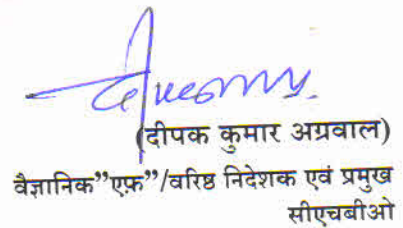 (दीपक कुमार अग्रवाल)
वैज्ञानिक”एफ”/वरिष्ठ निदेशक एवं प्रमुख
सीएचबीओ